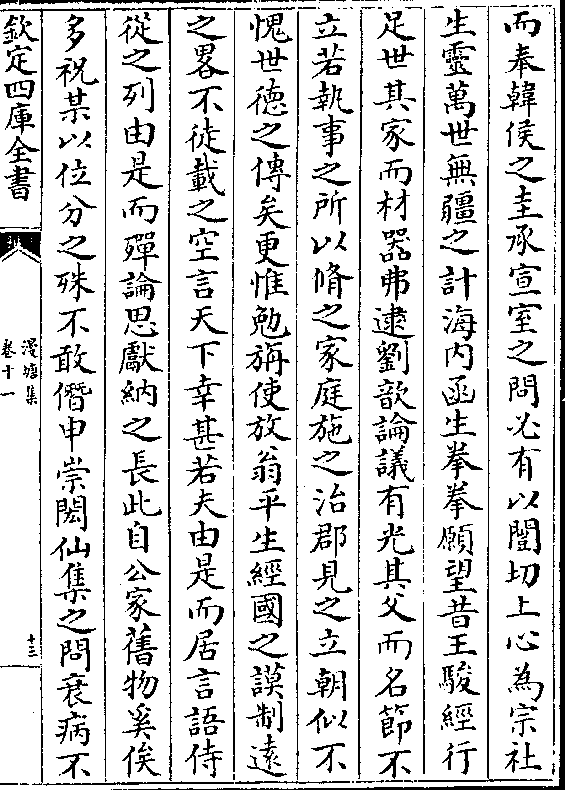 而奉韓侯之圭承宣室之問必有以闓切上心為宗社
生靈萬世無疆之計海内函生拳拳願望昔王駿經行
足世其家而材器弗逮劉歆論議有光其父而名節不
立若執事之所以脩之家庭施之治郡見之立朝似不
愧世徳之傳矣更惟勉旃使放翁平生經國之謨制逺
之畧不徒載之空言天下幸甚若夫由是而居言語侍
從之列由是而殫論思獻納之長此自公家舊物奚俟
多祝某以位分之殊不敢僭申崇閎仙集之問衰病不
欽定四庫全書
漫塘集
卷十一
十三